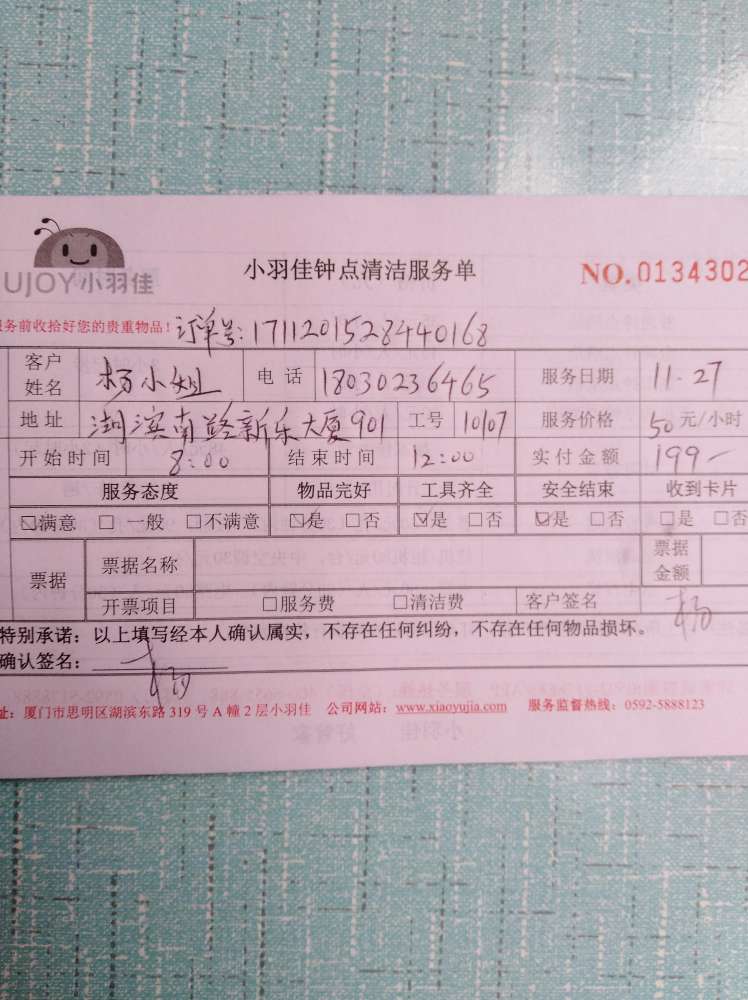 UJOY小羽佳
小羽佳钟点清洁服务单
NO.0134302
务前收拾好您的贵重物品！订单号:1711201528440168
客户姓名 杨小姐 电话 18030236465 服务日期 11.27
地址 湖滨南路新乐大厦901 工号 10107 服务价格 50元/小时
开始时间 8:00 结束时间 12:00 实付金额 199-
服务态度 物品完好 工具齐全 安全结束 收到卡片
☑满意 □一般 □不满意 ☑是 □否 ☑是 □否 ☑是 □否 □是 □否
票据 票据名称 票据金额
开票项目 □服务费 □清洁费 客户签名 杨
特别承诺：以上填写经本人确认属实，不存在任何纠纷，不存在任何物品损坏。
确认签名： 杨
址：厦门市思明区湖滨东路319号A幢2层小羽佳 公司网站：www.xiaoyujia.com 服务监督热线：0592-5888123